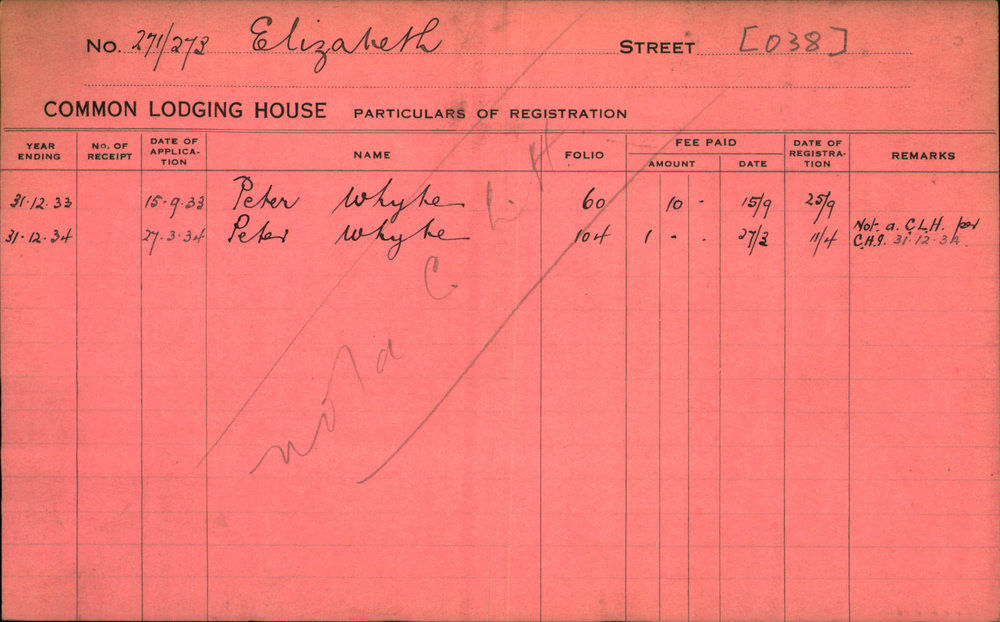 No. 271/273 Elizabeth STREET [038]
COMMON LODGING HOUSE PARTICULARS OF REGISTRATION
YEAR ENDING No. OF RECEIPT DATE OF APPLICA-TION NAME FOLIO FEE PAID AMOUNT DATE DATE OF REGISTRA-TION REMARKS
31.12.33 15.9.33 Peter Whyte 60 10 - 15/9 25/9
31.12.34 27.3.34 Peter Whyte 104 1 - - 27/3 11/4 Not a C.L.H. per
C.H.I. 31.12.34.
not a C. L. H.